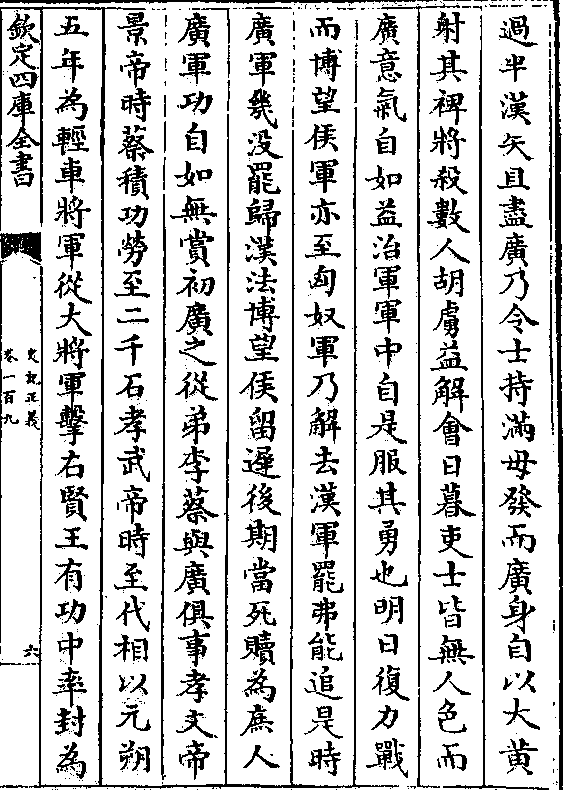 過半漢矢且盡廣乃令士持滿毋發而廣身自以大黄
射其裨將殺數人胡虜益解會日暮吏士皆無人色而
廣意氣自如益治軍軍中自是服其勇也明日復力戰
而博望侯軍亦至匈奴軍乃解去漢軍罷弗能追是時
廣軍幾没罷歸漢法博望侯留遲後期當死贖為庶人
廣軍功自如無賞初廣之從弟李蔡與廣俱事孝文帝
景帝時蔡積功勞至二千石孝武帝時至代相以元朔
五年為輕車將軍從大將軍擊右賢王有功中率封為
欽定四庫全書
史記正義
卷一百九
六